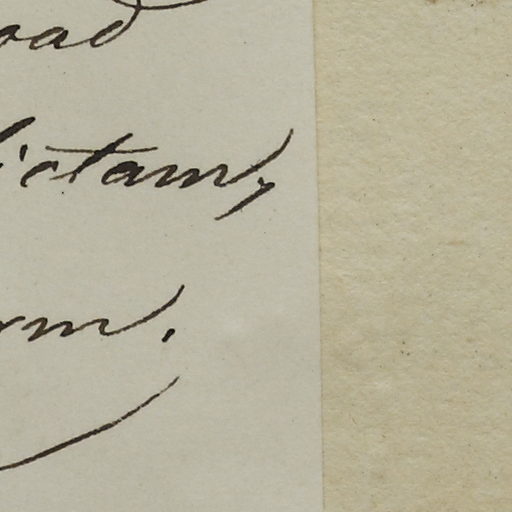 oad
ictam,
rm.